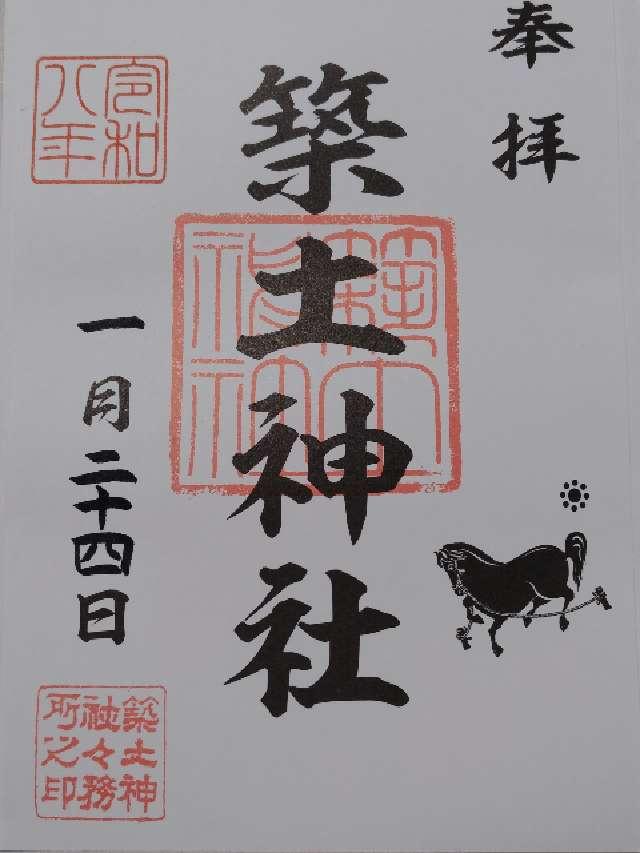 奉拝
築土神社
築土神社
令和
八年
一月二十四日
築土神
社々務
所之印